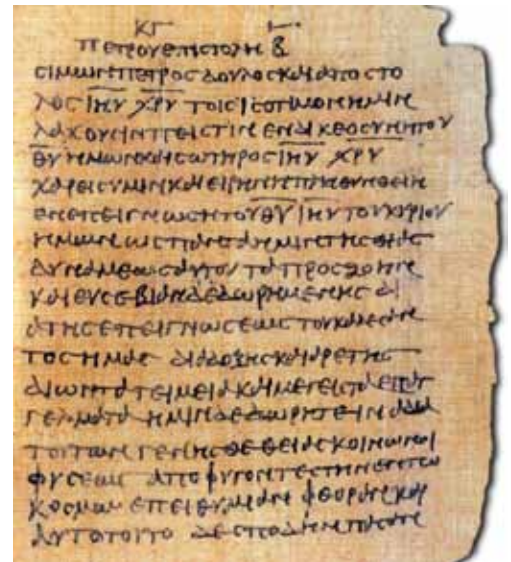 ΚΓ
ΠΕΤΡΟΥ ΕΠΙϹΤΟΛΗ Β
ϹΙΜΩΝ ΠΕΤΡΟϹ ΔΟΥΛΟϹ ΚΑΙ ΑΠΟϹΤΟ
ΛΟϹ ΙΗΥ ΧΡΥ ΤΟΙϹ ΙϹΟΤΙΜΟΝ ΗΜΙΝ
ΛΑΧΟΥϹΙΝ ΠΕΙϹΤΙΝ ΕΝ ΔΙΚΕΟϹΥΝΗ ΤΟΥ
ΘΥ ΗΜΩΝ ΚΑΙ ϹΩΤΗΡΟϹ ΙΗΥ ΧΡΥ
ΧΑΡΕΙϹ ΥΜΙΝ ΚΑΙ ΕΙΡΗΝΗ ΠΛΗΘΥΝΘΕΙΗ
ΕΝ ΕΠΕΙΓΝΩϹΗ ΤΟΥ ΘΥ ΙΗΥ ΤΟΥ ΚΥΡΙΟΥ
ΗΜΩΝ ΩϹ ΠΑΝΤΑ ΗΜΙΝ ΤΗϹ ΘΙΑϹ
ΔΥΝΑΜΕΩϹ ΑΥΤΟΥ ΤΑ ΠΡΟϹ ΖΩΗΝ
ΚΑΙ ΕΥϹΕΒΙΑΝ ΔΕΔΩΡΗΜΕΝΗϹ ΔΙ
Α ΤΗϹ ΕΠΕΙΓΝΩϹΕΩϹ ΤΟΥ ΚΑΛΕϹΑΝ
ΤΟϹ ΗΜΑϹ ΔΙΑ ΔΟΞΗϹ ΚΑΙ ΑΡΕΤΗϹ
ΔΙ ΩΝ ΤΑ ΤΕΙΜΕΙΑ ΚΑΙ ΜΕΓΕΙϹΤΑ ΕΠΑΓ
ΓΕΛΜΑΤΑ ΗΜΙΝ ΔΕΔΩΡΗΤΕ ΙΝΑ ΔΙΑ
ΤΟΥΤΩΝ ΓΕΝΗϹΘΕ ΘΕΙΑϹ ΚΟΙΝΩΝΟΙ
ΦΥϹΕΩϹ ΑΠΟΦΥΓΟΝΤΕϹ ΤΗΝ ΕΝ ΤΩ
ΚΟϹΜΩ ΕΠΕΙΘΥΜΙΑΝ ΦΘΟΡΑΝ ΚΑΙ
ΑΥΤΟ ΤΟΥΤΟ ΔΕ ϹΠΟΔΗΝ ΠΑϹΑΝ